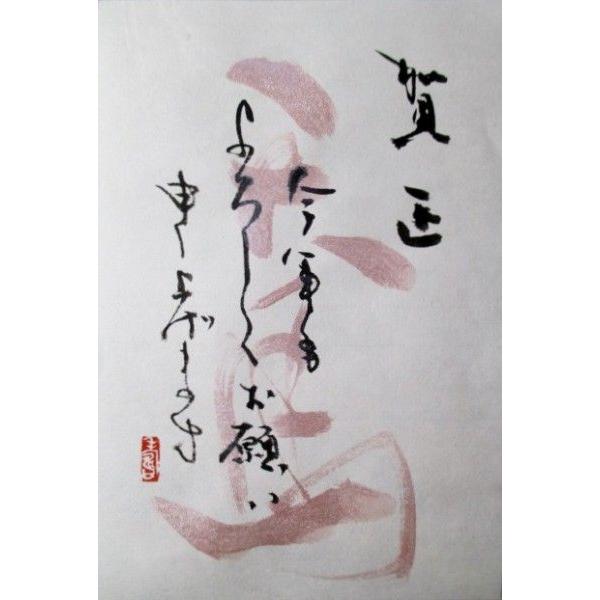 賀正
今年も
よろしくお願い
申し上げます